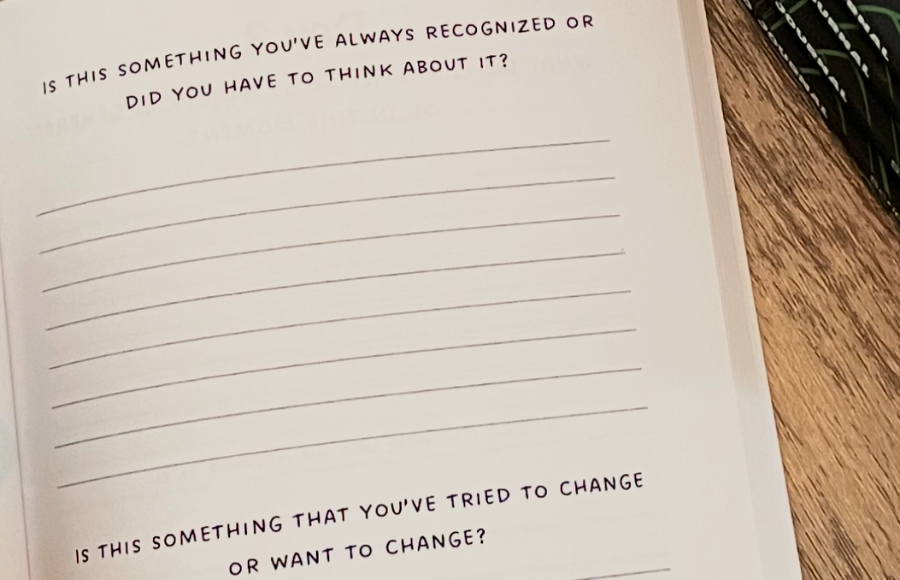 IS THIS SOMETHING YOU'VE ALWAYS RECOGNIZED OR
DID YOU HAVE TO THINK ABOUT IT?
IS THIS SOMETHING THAT YOU'VE TRIED TO CHANGE
OR WANT TO CHANGE?